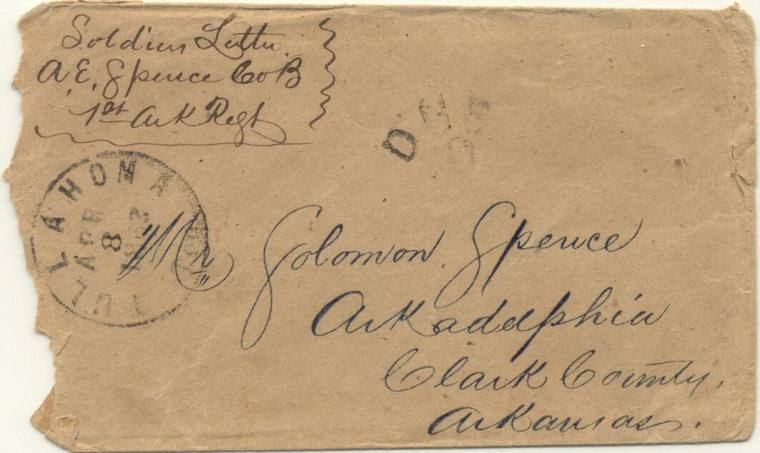 Soldiers Letter.
A E, Spence Co B
1st Ark Regt
TULLAHOMA
APR
8
DUE
Mr Solomon Spence
Arkadelphia
Clark County,
Arkansas.